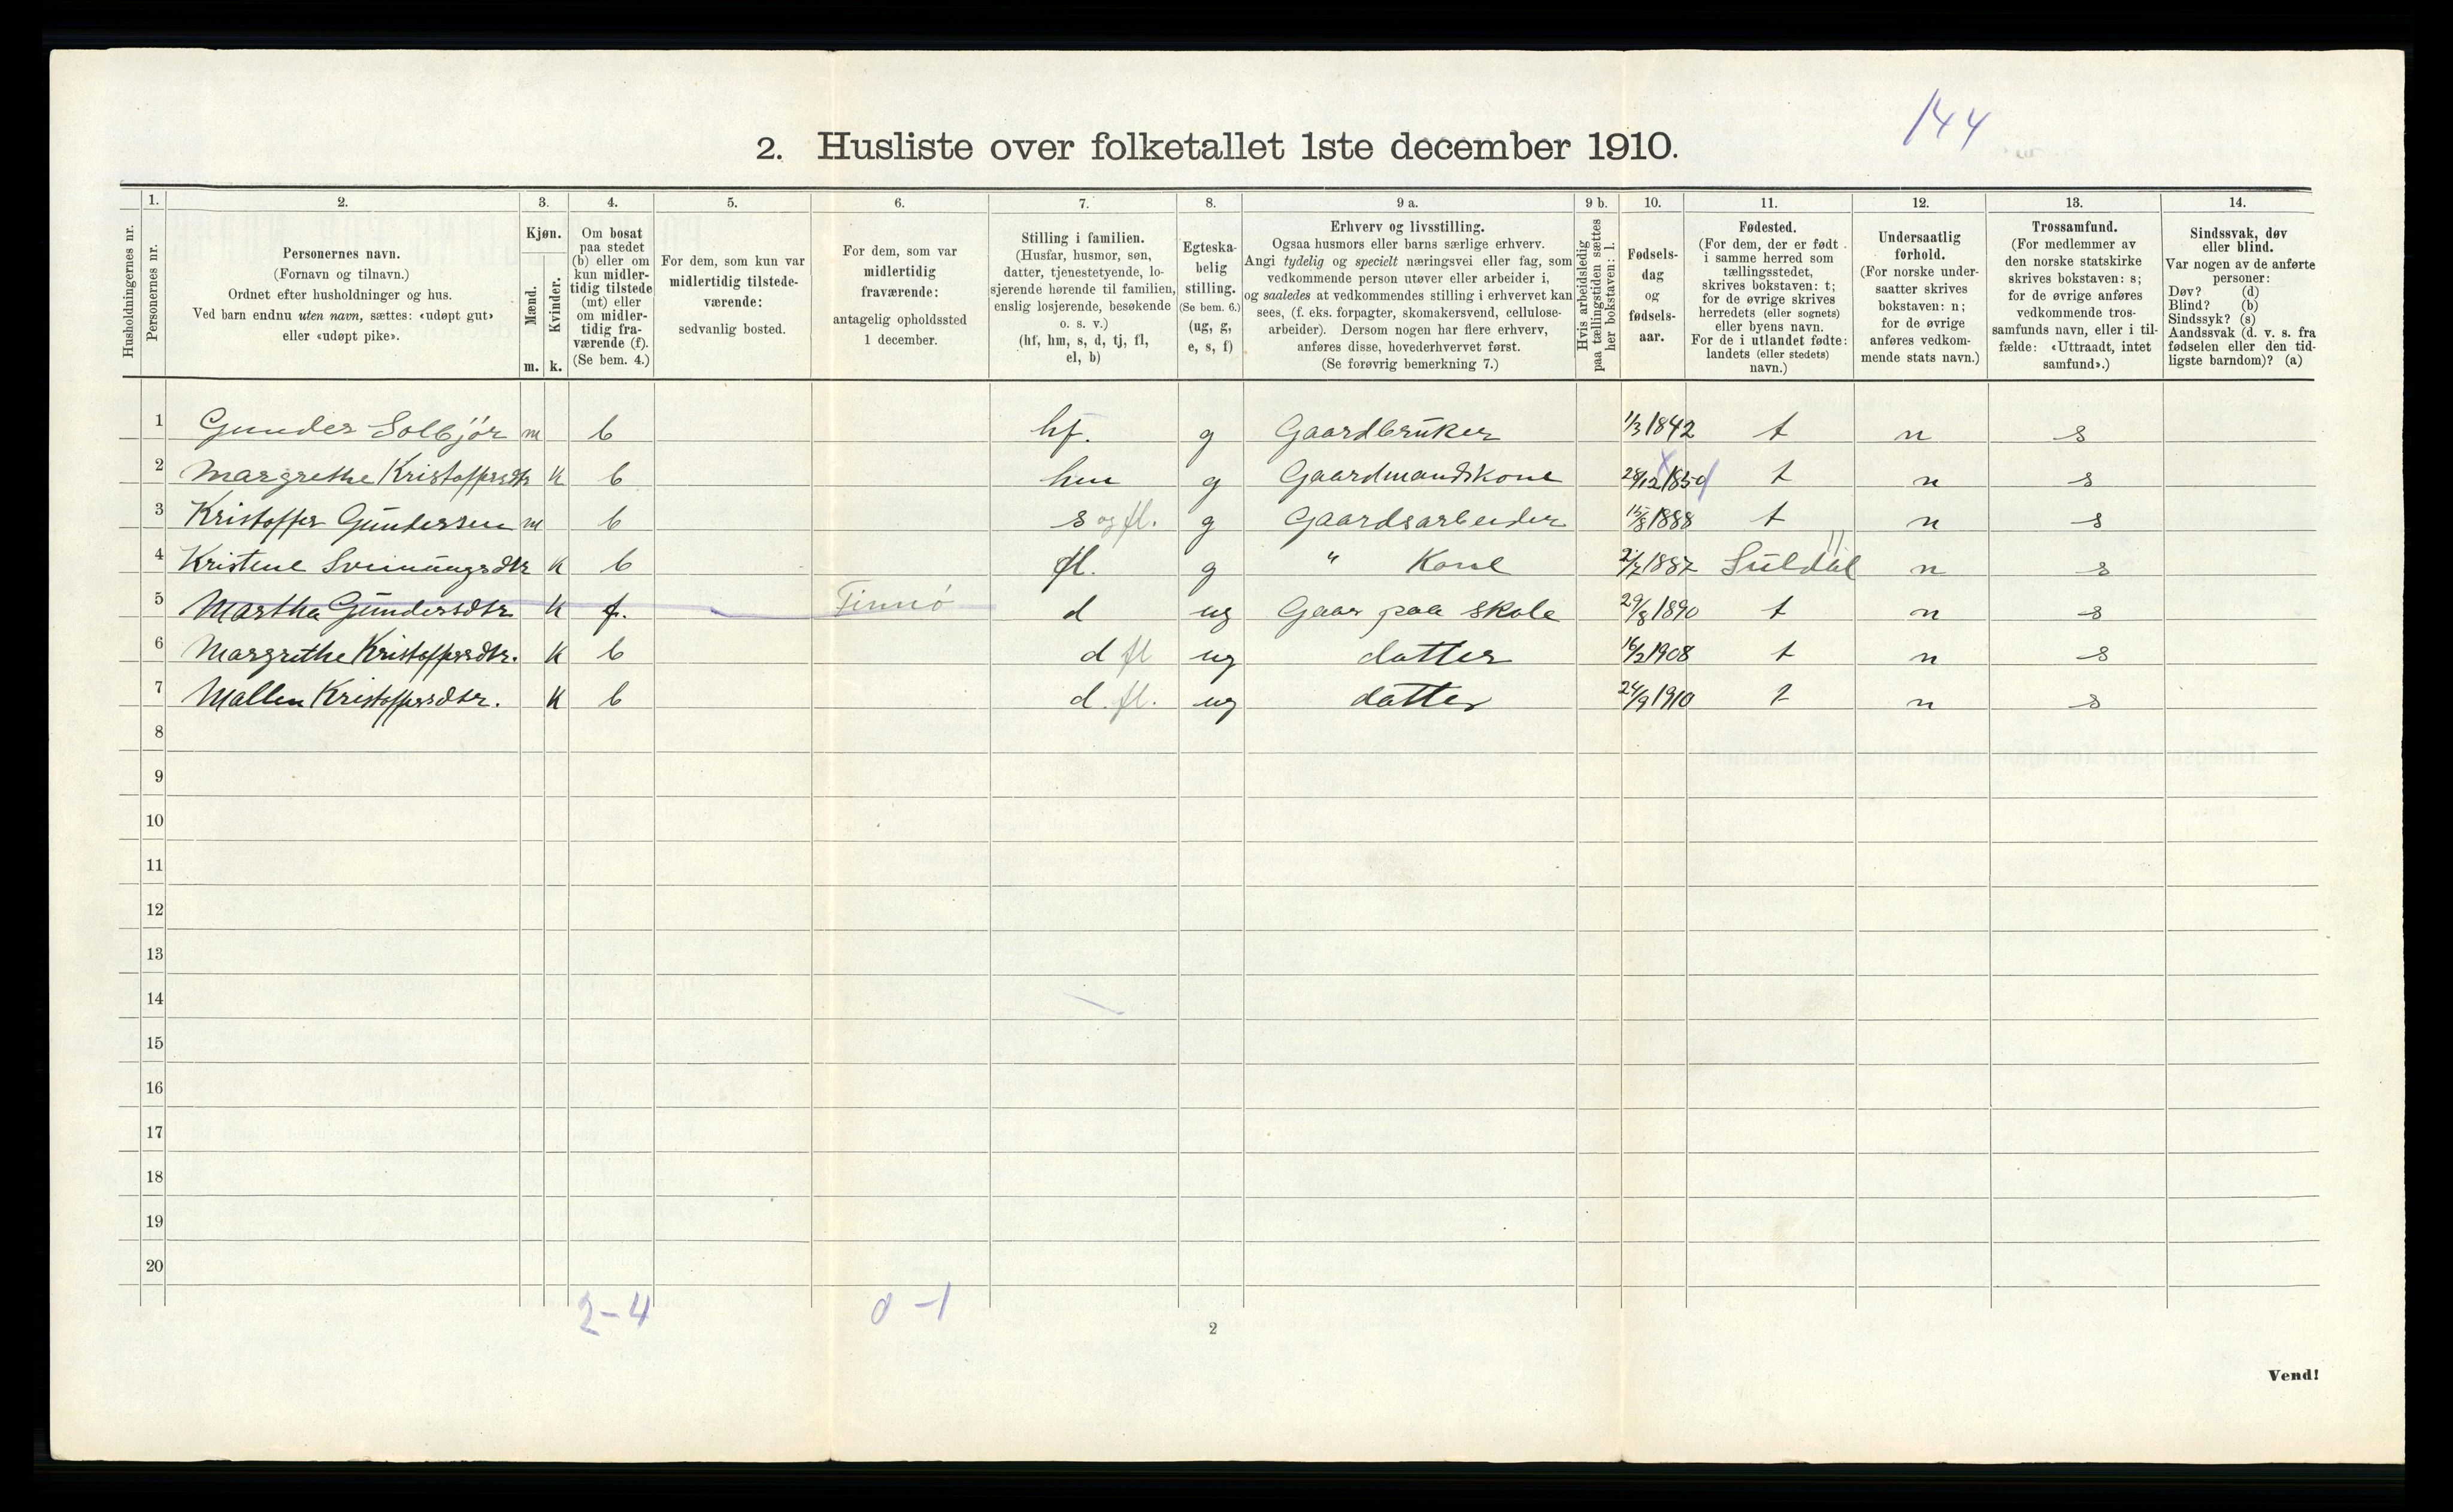 144
2. Husliste over folketallet 1ste december 1910.
Husholdningernes nr.
1. Personernes nr.
2. Personernes navn. (Fornavn og tilnavn.) Ordnet efter husholdninger og hus. Ved barn endnu uten navn, sættes: «udøpt gut» eller «udøpt pike».
3. Kjøn. Mænd. m. Kvinder. k.
4. Om bosat paa stedet (b) eller om kun midlertidig tilstede (mt) eller om midlertidig fraværende (f). (Se bem. 4.)
5. For dem, som kun var midlertidig tilstedeværende: sedvanlig bosted.
6. For dem, som var midlertidig fraværende: antagelig opholdssted 1 december.
7. Stilling i familien. (Husfar, husmor, søn, datter, tjenestetyende, losjerende hørende til familien, enslig losjerende, besøkende o. s. v.) (hf, hm, s, d, tj, fl, el, b)
8. Egteskabelig stilling. (Se bem. 6.) (ug, g, e, s, f)
9 a. Erhverv og livsstilling. Ogsaa husmors eller barns særlige erhverv. Angi tydelig og specielt næringsvei eller fag, som vedkommende person utøver eller arbeider i, og saaledes at vedkommendes stilling i erhvervet kan sees, (f. eks. forpagter, skomakersvend, cellulosearbeider). Dersom nogen har flere erhverv, anføres disse, hovederhvervet først. (Se forøvrig bemerkning 7.)
9 b. Hvis arbeidsledig paa tællingstiden sættes her bokstaven: l.
10. Fødselsdag og fødselsaar.
11. Fødested. (For dem, der er født i samme herred som tællingsstedet, skrives bokstaven: t; for de øvrige skrives herredets (eller sognets) eller byens navn. For de i utlandet fødte: landets (eller stedets) navn.)
12. Undersaatlig forhold. (For norske undersaatter skrives bokstaven: n; for de øvrige anføres vedkommende stats navn.)
13. Trossamfund. (For medlemmer av den norske statskirke skrives bokstaven: s; for de øvrige anføres vedkommende trossamfunds navn, eller i tilfælde: «Uttraadt, intet samfund».)
14. Sindssvak, døv eller blind. Var nogen av de anførte personer: Døv? (d) Blind? (b) Sindssyk? (s) Aandssvak (d. v. s. fra fødselen eller den tidligste barndom)? (a)
1 Gunder Solbjör m b hf. g Gaardbruker 1/3 1842 t n s
2 Margrethe Kristoffersdtr k b hm g Gaardmandskone 28/12 1850 t n s
3 Kristoffer Gundersen m b s og fl. g Gaardsarbeider 15/8 1888 t n s
4 Kristene Sveinungsdtr k b fl. g " Kone 1887 Suldal n s
5 Martha Gundersdtr k f. Finnö d ug Gaar paa skole 29/8 1890 t n s
6 Margrethe Kristoffersdtr. k b d fl ug datter 16/2 1908 t n s
7 Mallen Kristoffersdtr. k b d. fl. ug datter 24/9 1910 t n s
8
9
10
11
12
13
14
15
16
17
18
19
20
2-4 0-1
2
Vend!